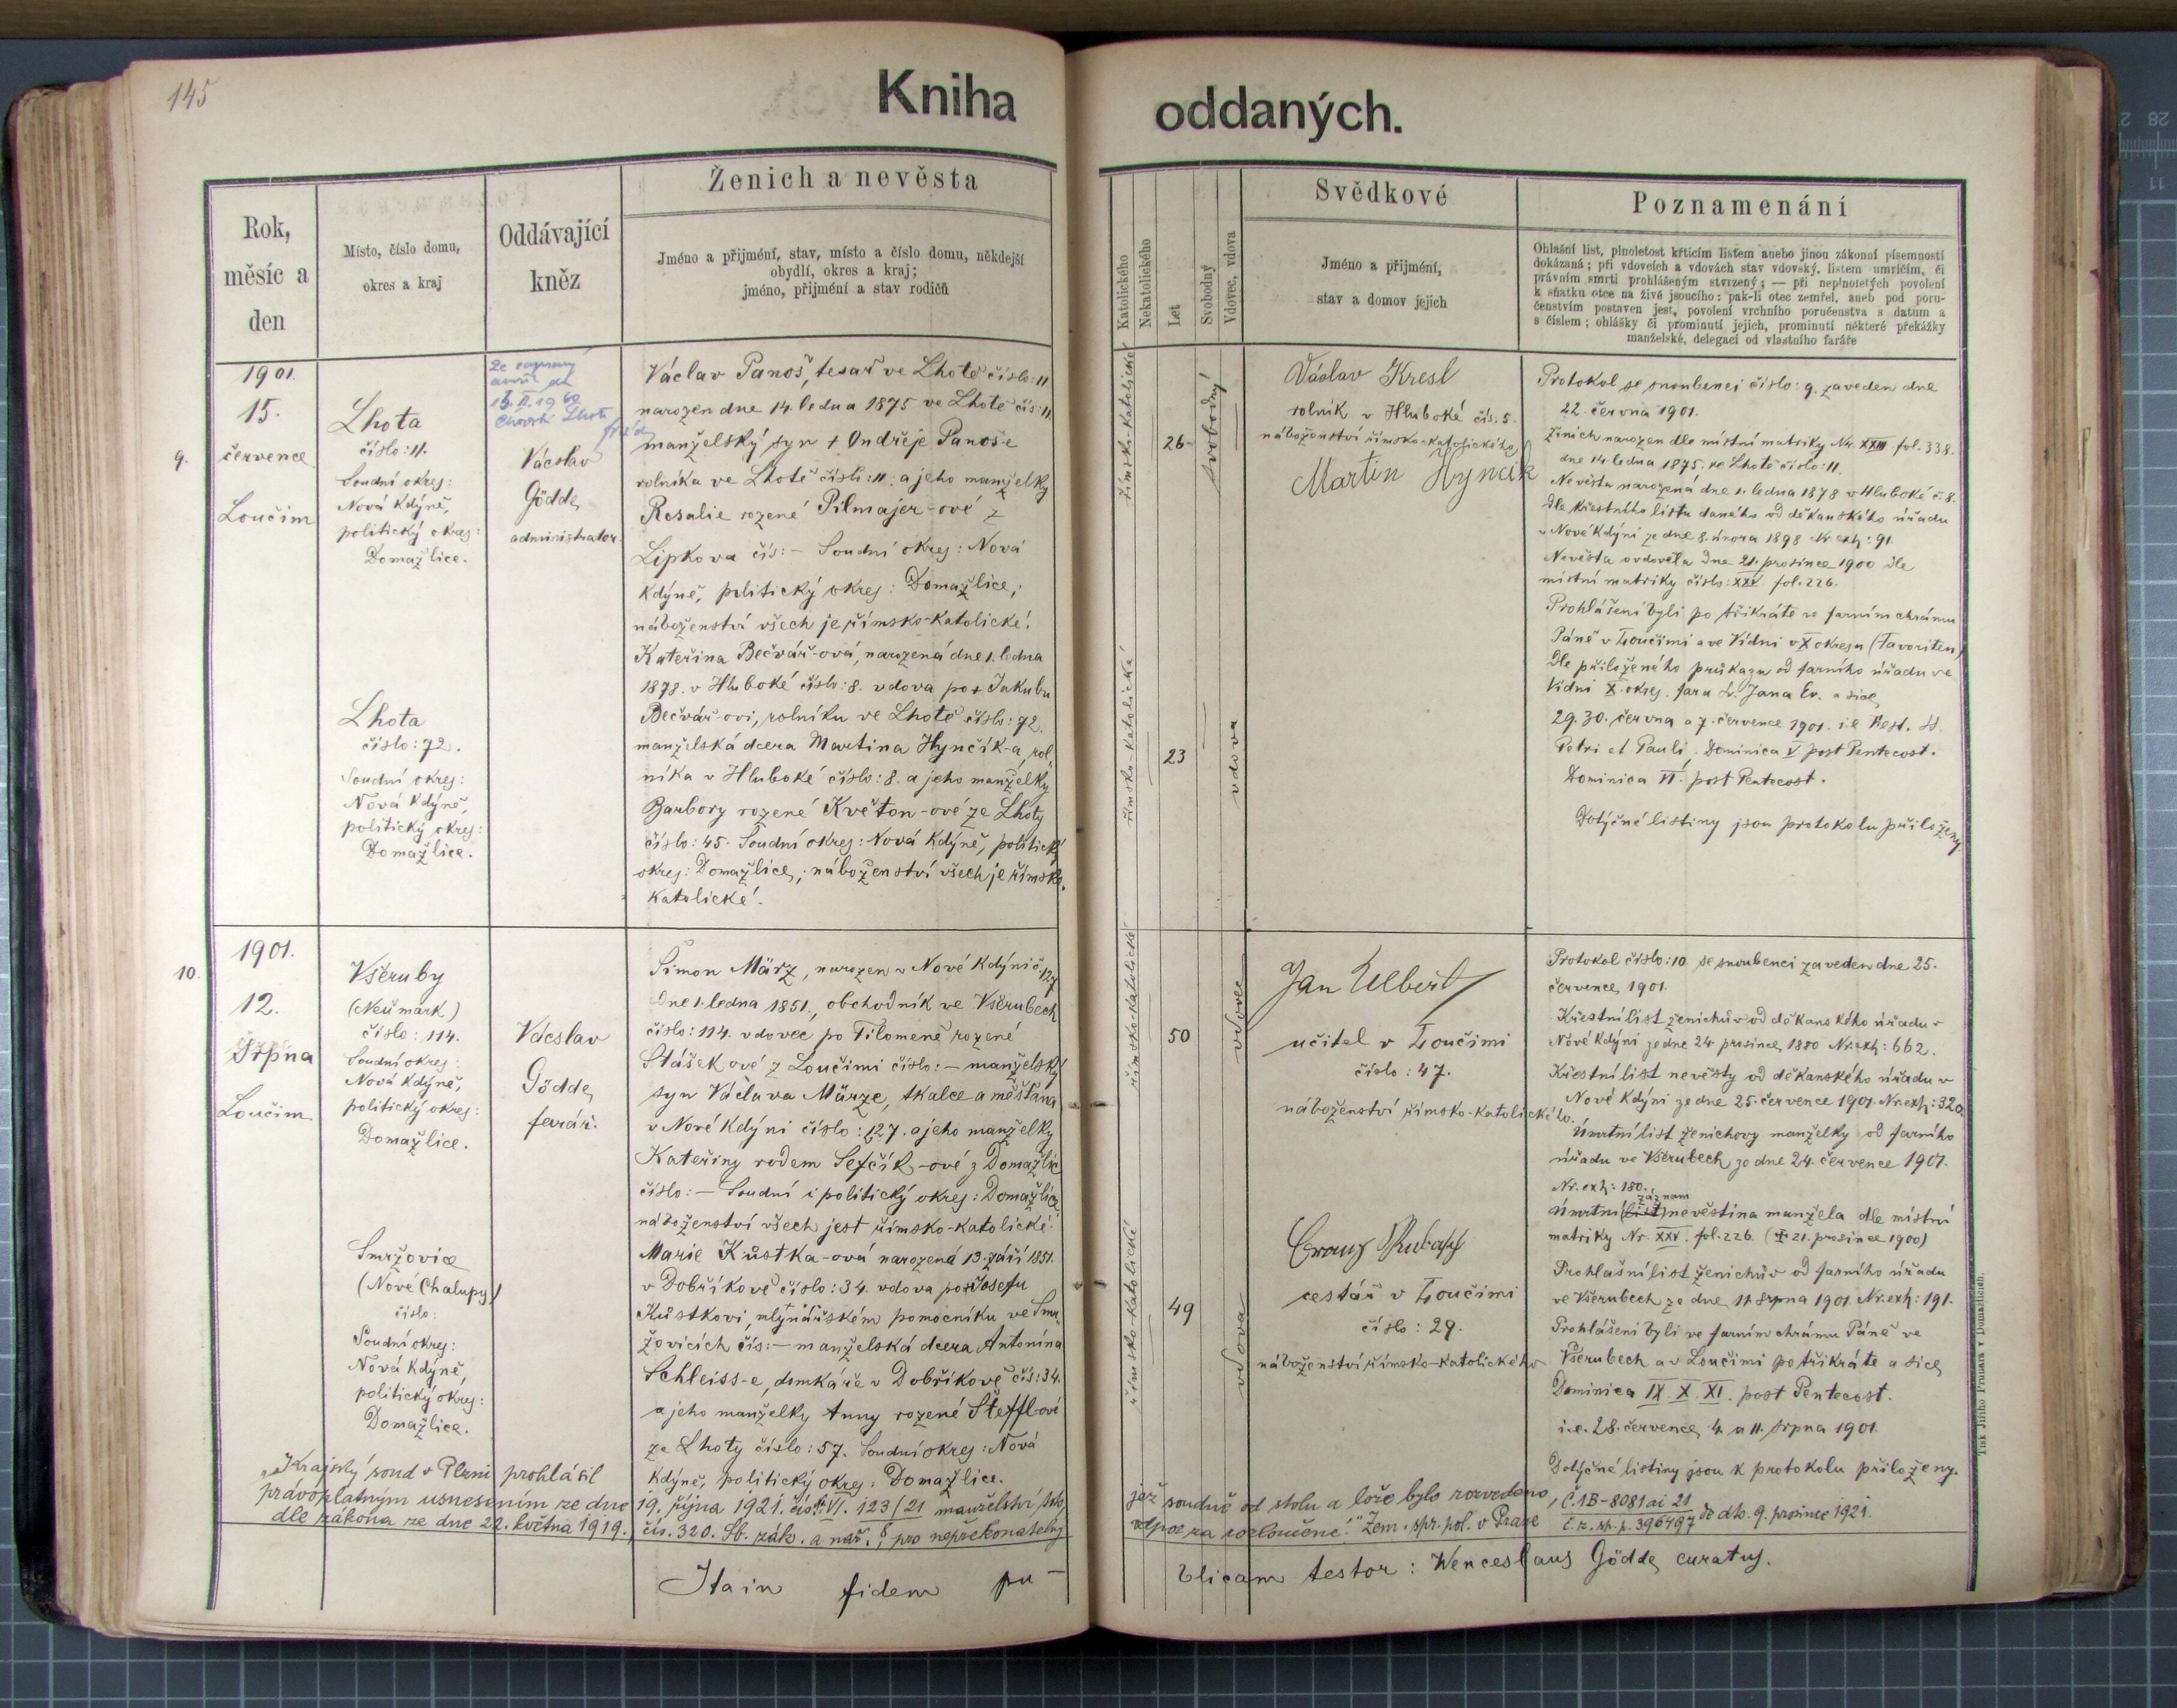 145
Kniha oddaných.
Rok,
měsíc a
den
Místo, číslo domu,
okres a kraj
Oddávající
kněz
Ženich a nevěsta
Jméno a přijmení, stav, místo a číslo domu, někdejší
obydlí, okres a kraj;
jméno, přijmení a stav rodičů
Katolického
Nekatolického
Let
Svobodný
Vdovec, vdova
Svědkové
Jméno a přijmení,
stav a domov jejich
Poznamenání
Ohlašní list, plnoletost křticím listem anebo jinou zákonní písemností
dokázaná; při vdovcích a vdovách stav vdovský, listem umrlčím, či
právním smrti prohlášeným stvrzený; — při neplnoletých povolení
k sňatku otce na živě jsoucího: pak-li otec zemřel, aneb pod poru-
čenstvím postaven jest, povolení vrchního poručenstva s datum a
s číslem; ohlášky či prominutí jejich, prominutí některé překážky
manželské, delegací od vlastního faráře
9.
1901.
15.
července
Loučim
Lhota
číslo: 11.
Soudní okres:
Nová Kdýně,
politický okres:
Domažlice.
Lhota
číslo: 72.
Soudní okres:
Nová Kdýně,
politický okres:
Domažlice.
15. II. 1960
Lhota
Václav
Gödde,
administrator.
Václav Panoš, tesař ve Lhotě číslo: 11
narozen dne 14. ledna 1875 ve Lhotě čís: 11
manželský syn + Ondřeje Panoše
rolníka ve Lhotě čísli: 11. a jeho manželky
Rosalie rozené Pilmajer-ové z
Lipkova čís: – Soudní okres: Nová
Kdýně, politický okres: Domažlice;
náboženství všech je římsko-katolické.
Kateřina Bečvář-ová, narozená dne 1. ledna
1878. v Hluboké číslo: 8. vdova po + Jakubu
Bečvář-ovi, rolníku ve Lhotě číslo: 72.
manželská dcera Martina Hynčík-a, rol
níka v Hluboké číslo: 8. a jeho manželky
Barbory rozené Květon-ové ze Lhoty
číslo: 45. Soudní okres: Nová Kdýně, politický
okres: Domažlice; náboženství všech je římsko-
katolické.
římsko-katolické
26
svobodný
římsko-katolická
23
vdova
Václav Kresl
rolník v Hluboké čís. 5.
náboženství římsko-katolického
Martin Hynčík
Protokol se snoubenci číslo: 9. zaveden dne
22. června 1901.
Ženich narozen dle místní matriky Nr. XXIII fol. 338.
dne 14. ledna 1875. ve Lhotě číslo: 11.
Nevěsta narozená dne 1. ledna 1878 v Hluboké č. 8.
dle křestního listu daného od děkanského úřadu
v Nové Kdýni ze dne 8. února 1898 Nr. exh: 91.
Nevěsta ovdověla dne 21. prosince 1900 dle
místní matriky číslo: XXV. fol. 226.
Prohlášeni byli po třikráte ve farním chrámu
Páně v Loučimi a ve Vídni v X okresu (Favoriten)
dle přiloženého průkazu od farního úřadu ve
Vídni X. okres. fara Sv. Jana Ev. a sice
29. 30. června a 7. července 1901. i. e. Fest. SS.
Petri et Pauli. Dominica V post Pentecost.
Dominica VI. post Pentecost.
Dotýčné listiny jsou protokolu přiloženy
10.
1901.
12.
Srpna
Loučim
Všeruby
(Neumark)
číslo: 114.
Soudní okres:
Nová Kdýně,
politický okres:
Domažlice.
Smržovice
(Nové Chalupy)
číslo:
Soudní okres:
Nová Kdýně,
politický okres:
Domažlice.
Václav
Gödde,
farář.
Šimon März, narozen v Nové Kdýni č. 127
dne 1. ledna 1851., obchodník ve Všerubech
číslo: 114. vdovec po Filomeně rozené
Stášek ové z Loučimi číslo: – manželský
syn Václava Märze, tkalce a měšťana
v Nové Kdýni číslo: 127. a jeho manželky
Kateřiny rodem Sefčík-ové z Domažlic
číslo: – Soudní i politický okres: Domažlice,
náboženství všech jest římsko-katolické.
Marie Kůstka-ová narozená 13. září 1851.
v Dobříkově číslo: 34. vdova po + Josefu
Kůstkovi, mlynářském pomocníku ve Smr-
žovicích čís: – manželská dcera Antonína
Schleiss-e, domkáře v Dobříkově čís: 34.
a jeho manželky Anny rozené Štefflové
ze Lhoty číslo: 57. Soudní okres: Nová
Kdýně, politický okres: Domažlice.
římsko-katolické
50
vdovec
římsko-katolické
49
vdova
Jan Elbert
učitel v Loučimi
číslo: 47.
náboženství římsko-katolického.
Franz Rubasch
cestář v Loučimi
číslo: 29.
náboženství římsko-katolického
Protokol číslo: 10. se snoubenci zaveden dne 25.
července, 1901.
Křestní list ženichův od děkanského úřadu v
Nové Kdýni ze dne 24. prosince 1880 Nr. exh: 662.
Křestní list nevěsty od děkanského úřadu v
Nové Kdýni ze dne 25. července 1901. Nr. exh: 320.
Úmrtní list ženichovy manželky od farního
úřadu ve Všerubech ze dne 24. července 1901.
Nr. exh: 180.
záznam
Úmrtní (list) nevěstina manžela dle místní
matriky Nr. XXV. fol. 226. († 21. prosince 1900)
Prohlašní list ženichův od farního úřadu
ve Všerubech ze dne 11 Srpna 1901 Nr. exh: 191.
Prohlášeni byli ve farním chrámu Páně ve
Všerubech a v Loučimi po třikráte a sice,
Dominica IX. X. XI. post Pentecost.
i. e. 28. července, 4. a 11. srpna 1901.
Dotýčné listiny jsou k protokolu přiloženy.
„Krajský soud v Plzni prohlásil
právoplatným usnesením ze dne 19. října 1921. čís. 123/21 manželství toto,
jež soudně od stolu a lože bylo rozvedeno,
dle zákona ze dne 22. května 1919., čís. 320. Sb. zák. a nař., pro nepřekonatelný
odpor za rozloučené." Zem. spr. pol. v Praze č. 1B-8081 ai 21 / č. z. sp. p. 396497 de dto. 9. prosince 1921.
Ita in fidem pu-
blicam testor: Wenceslaus Gödde, curatus.
Tisk Jiřího Prunara v Domažlicích.